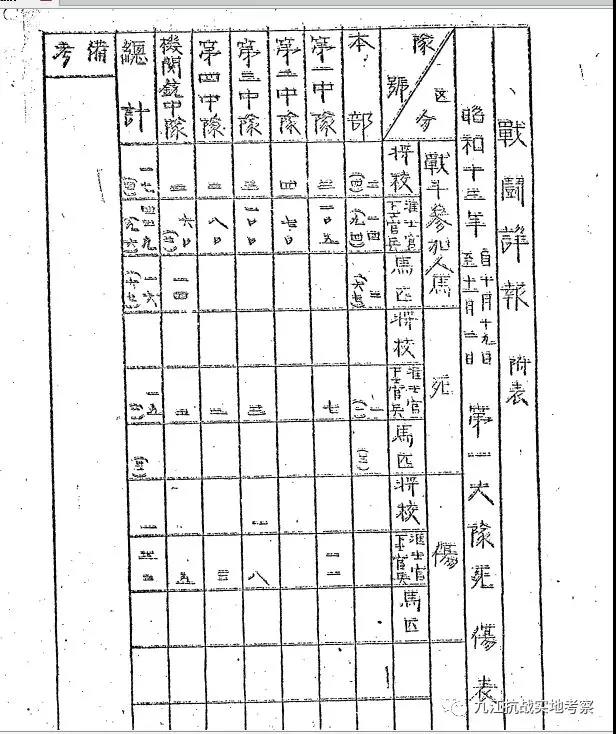 戰鬪詳報 附表
昭和十三年 自十月十九日 至十一月二日 第一大隊死傷表
区分
隊號
戰斗參加人馬 死 傷
將校 准士官下士官兵 馬匹 將校 准士官下士官兵 馬匹 將校 准士官下士官兵 馬匹
本部 二(四) 一四(九四) (三)
第一中隊 三 一〇五 七 一二
第二中隊 四 七〇
第三中隊 三 一〇〇 三 一 八
第四中隊 二 八〇 二 三
機関銃中隊 二 六〇(二) 一四 五 五
總計 一六(四) (九六) 一六 (三) 一
備考
九江抗战实地考察